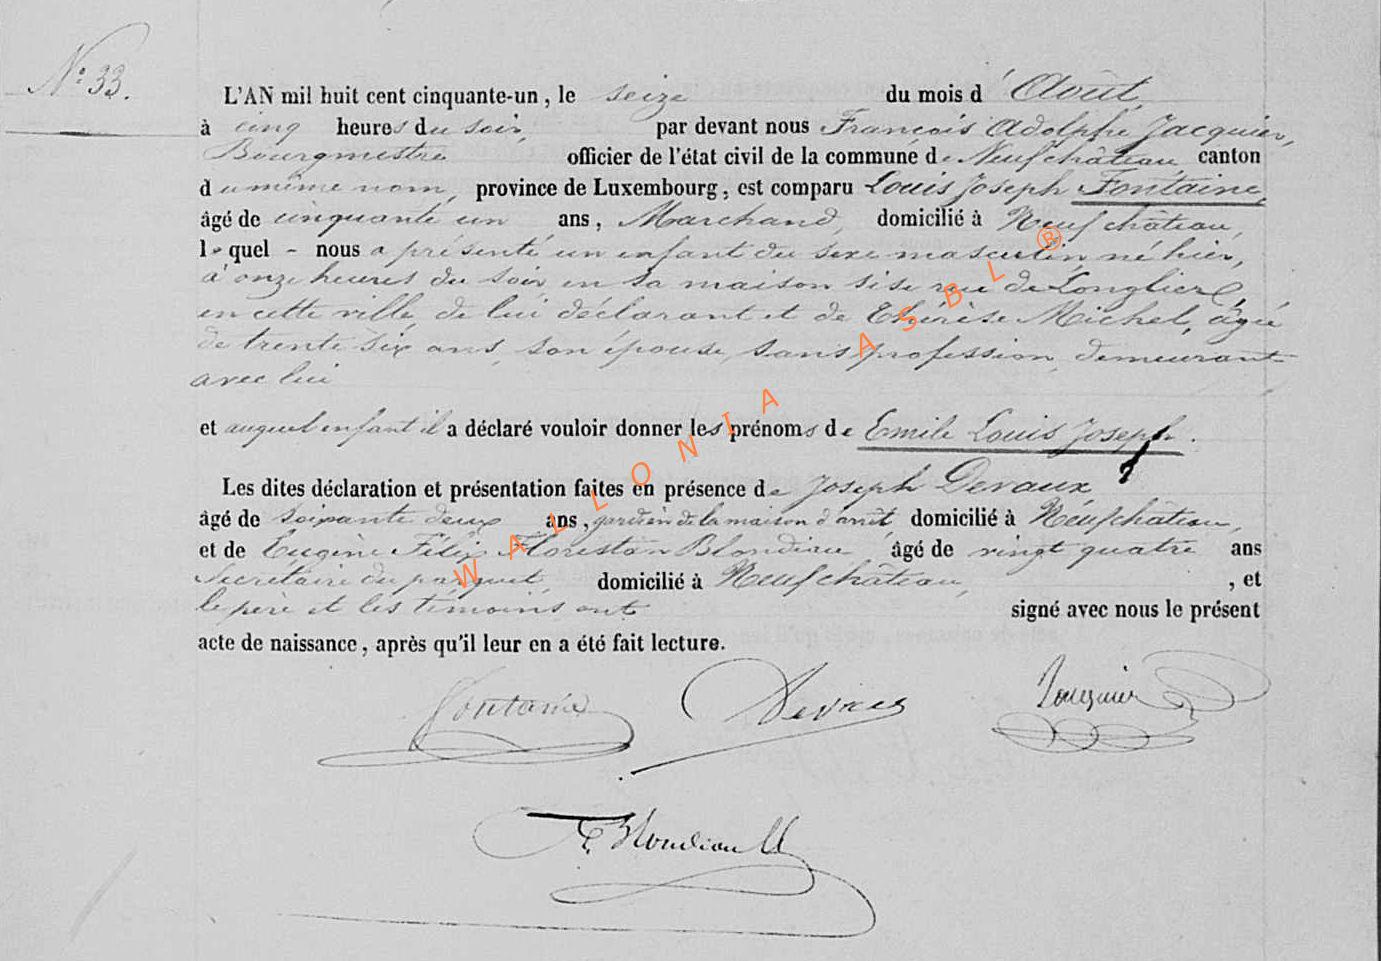 N° 33.
L'AN mil huit cent cinquante-un, le seize du mois d'Août,
à cinq heures du soir, par devant nous François Adolphe Jacquier,
Bourgmestre officier de l'état civil de la commune de Neufchâteau canton
du même nom, province de Luxembourg, est comparu Louis Joseph Fontaine,
âgé de cinquante un ans, Marchand, domicilié à Neufchâteau,
lequel - nous a présenté un enfant du sexe masculin, né hier,
à onze heures du soir en sa maison sise rue de Longlier,
en cette ville, de lui déclarant et de Thérèse Michel, âgée
de trente six ans, son épouse, sans profession, demeurant
avec lui
et auquel enfant il a déclaré vouloir donner les prénoms de Emile Louis Joseph.
Les dites déclaration et présentation faites en présence de Joseph Devaux
âgé de soixante deux ans, gardien de la maison d'arrêt domicilié à Neufchâteau,
et de Eugène Félix Florestan Blondiau, âgé de vingt quatre ans
Secrétaire du parquet, domicilié à Neufchâteau, , et
le père et les témoins ont signé avec nous le présent
acte de naissance, après qu'il leur en a été fait lecture.
Fontaine Jacquier
Blondiau
WALLONIA ASBL ®